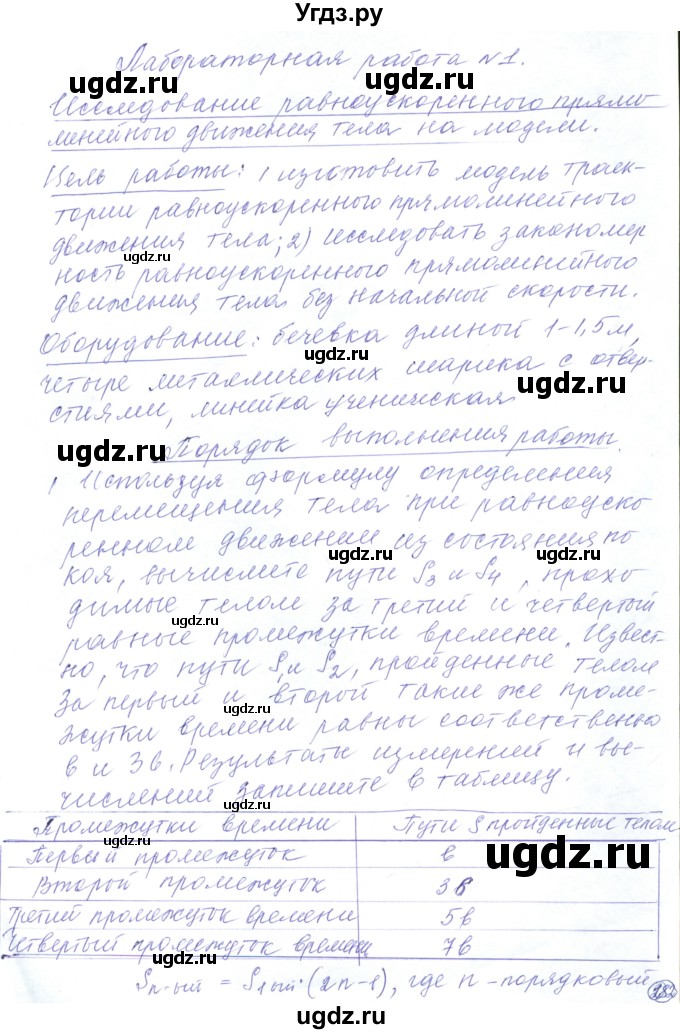 Угдз.ру
Лабораторная работа №1.
Исследование равноускоренного прямо-
линейного движения тела на модели.
Цель работы: 1 изготовить модель траек-
тории равноускоренного прямолинейного
движения тела; 2) исследовать закономер
ность равноускоренного прямолинийного
движения тела без начальной скорости.
Оборудование: бечевка длиной 1-1,5м,
четыре металлических шарика с отвер-
стиями, линейка ученическая
Порядок выполнения работы.
1 Используя формулу определения
перемещения тела при равноуско
ренном движении из состояния по
коя, вычислите пути S3 и S4, прохо-
димые телом за третий и четвертый
равные промежутки времени. Извест-
но, что пути S1 и S2, пройденные телом
за первый и второй такие же проме-
жутки времени равны соответственно
в и 3в. Результаты измерений и вы-
числений запишите в таблицу.
Промежутки времени Пути S пройденные телом
Первый промежуток в
Второй промежуток 3в
Третий промежуток времени 5в
Четвертый промежуток времени 7в
Sn-ый = S1ый·(2n-1), где n - порядковый